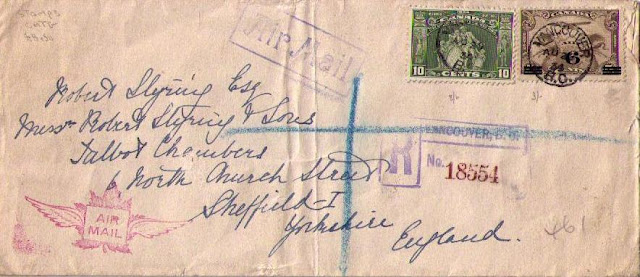 Air Mail
CANADA
10 CENTS 10
CANADA
6
5 5
VANCOUVER
AU
34
B.C.
Robert Styring Esq
Messrs Robert Styring & Sons
Talbot Chambers
6 North Church Street
Sheffield-I
Yorkshire
England.
VANCOUVER, B.C.
R No. 18554
AIR
MAIL